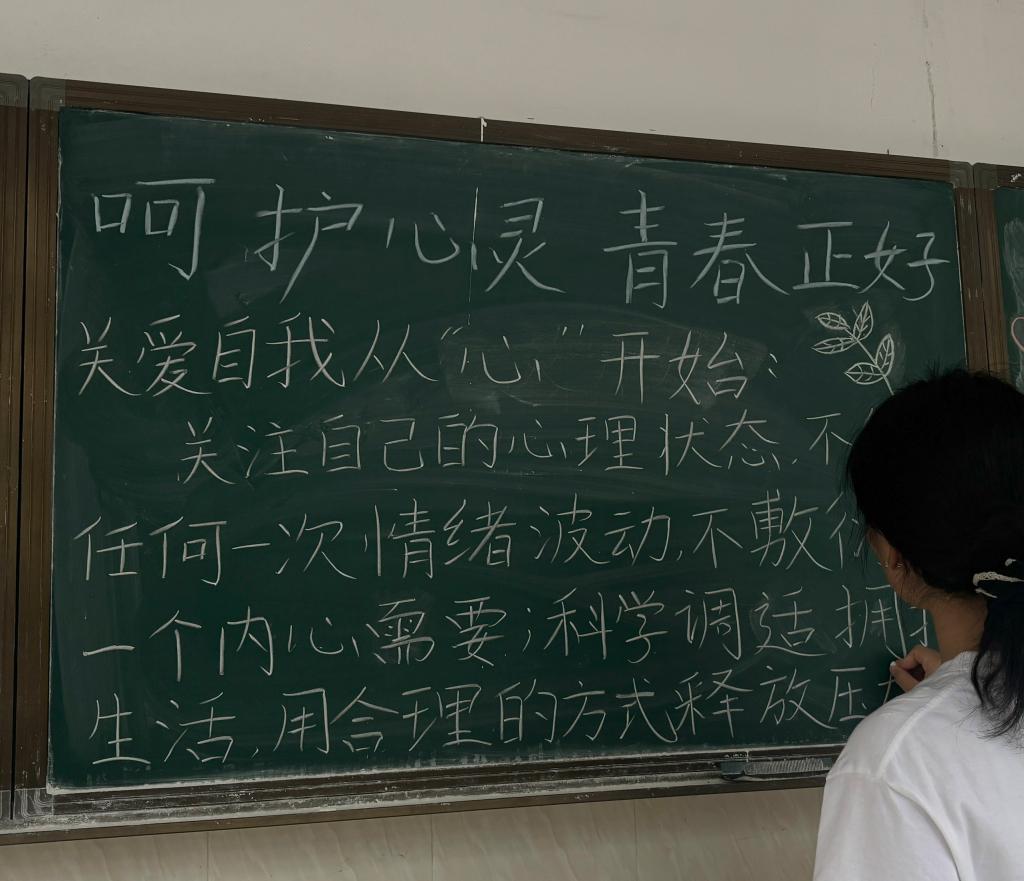 呵护心灵 青春正好
关爱自我从“心”开始:
关注自己的心理状态,不
任何一次情绪波动,不敷
一个内心需要;科学调适 拥
生活,用合理的方式释放压